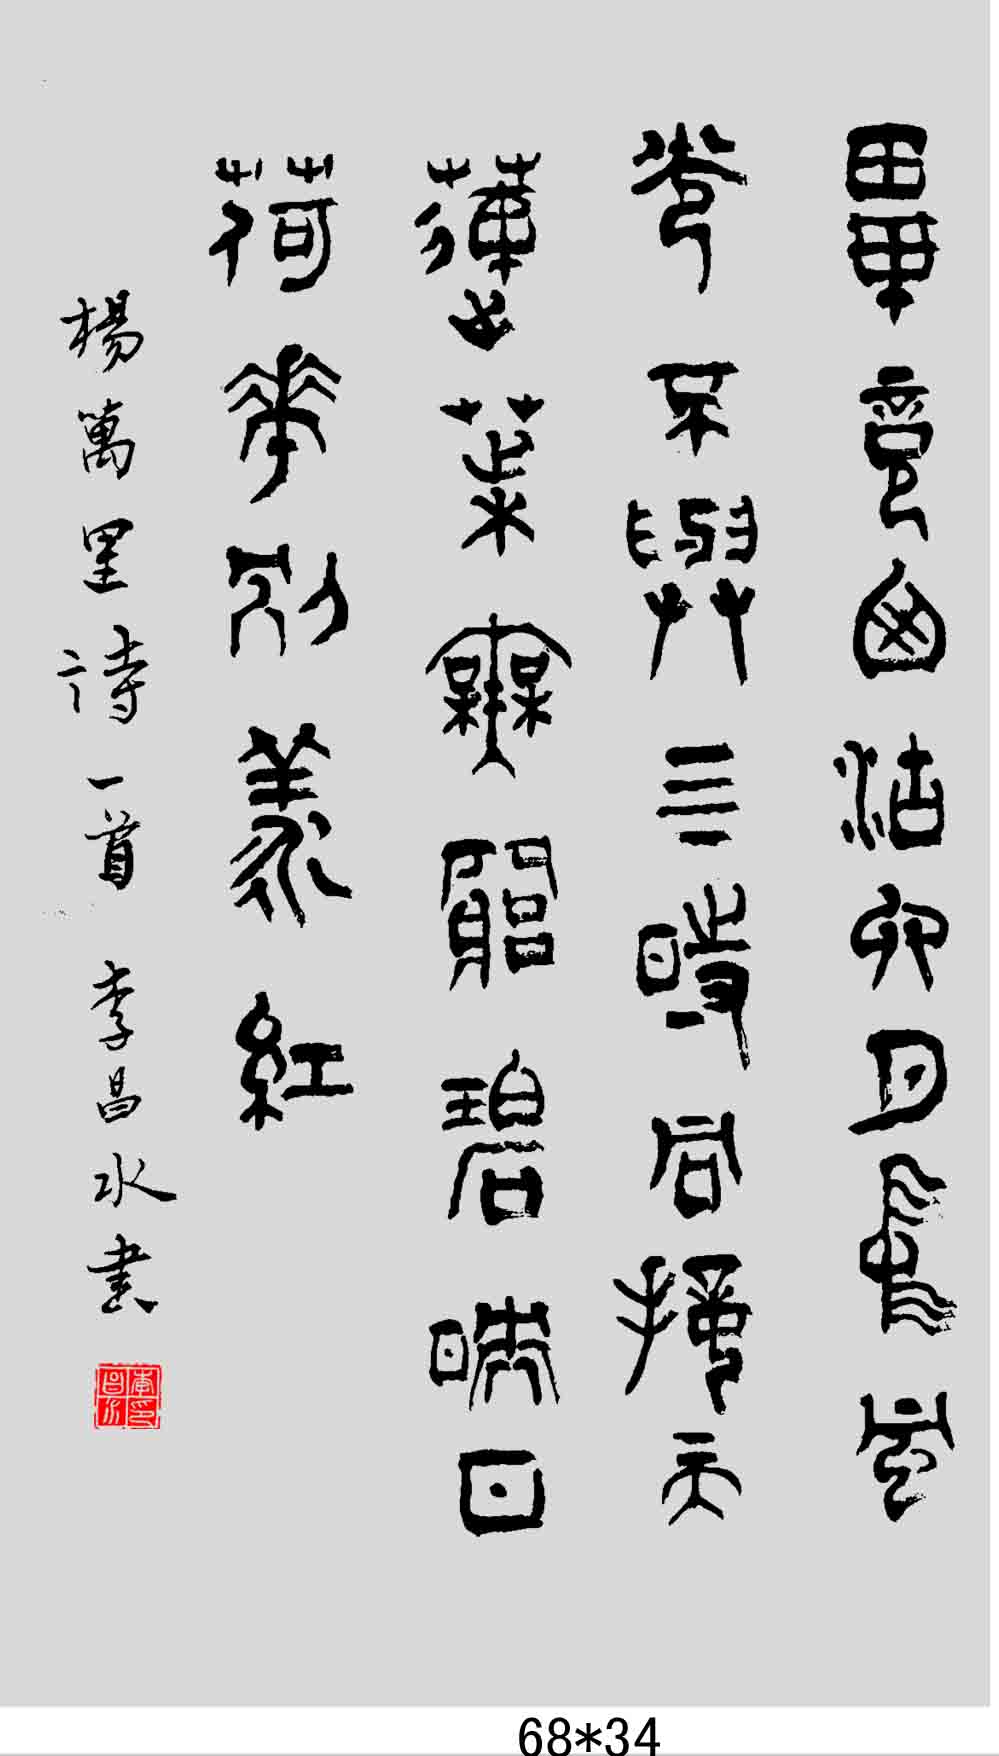 畢竟西湖六月中風
光不與三時同接天
蓮葉無窮碧映日
荷華別樣紅
楊萬里詩一首 李昌水書
李印昌水
68*34